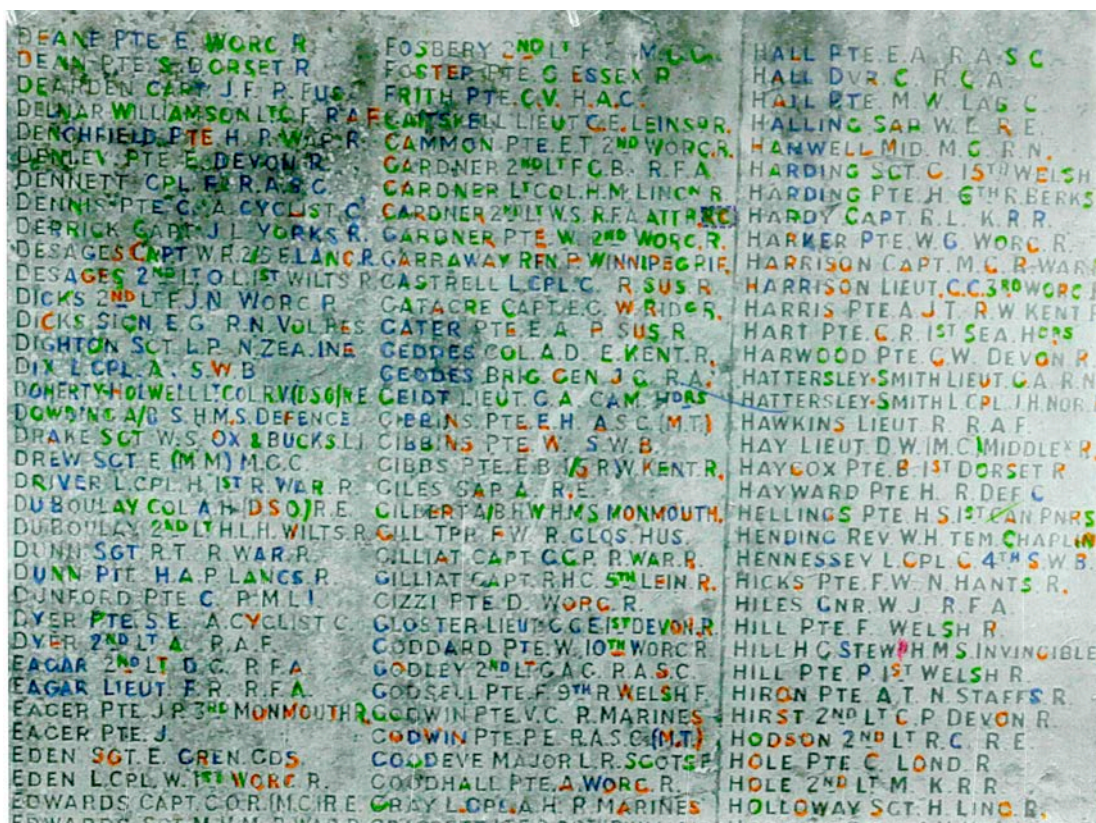 DEANE PTE. E. WORC. R.
DENN PTE. S. DORSET R
DEARDEN CAPT. J. F. R. FUS.
DELMAR WILLIAMSON LT. C. F. R A F
DENCHFIELD. PTE H. R. WAR. R.
DENLEY. PTE. E. DEVON. R.
DENNETT CPL. F. R.A.S.C.
DENNIS PTE. C. A. CYCLIST. C.
DERRICK CAPT. J. L. YORKS R.
DESAGES CAPT W.R. 2/5 E. LANC. R.
DESAGES 2ND LT. O. L. 1ST WILTS R.
DICKS 2ND LT F. J. N. WORC R.
DICKS. SIGN. E.G. R.N. VOL. RES
DIGHTON SGT. L.P. N. ZEA. INF
DIX L.CPL. A. S.W.B
DOHERTY-HOLWELL LT. COL. R.V. (DSO) R E
DOWDING A/B S. H.M.S. DEFENCE
DRAKE SGT W.S. OX & BUCKS. L.I.
DREW SGT. E. (M M) M.G.C.
DRIVER L.CPL. H. 1ST R. WAR R.
DU BOULAY COL A H (D S O) R. E.
DU BOULAY 2ND LT H. L. H. WILTS R.
DUNN SGT R.T. R. WAR. R.
DUNN PTE H.A.P. LANCS. R
DUNFORD PTE C. R.M.L.I.
DYER PTE. S. E. A. CYCLIST C.
DYER 2ND LT A. R. A. F.
EAGAR 2ND LT D.C. R.F.A.
EAGAR LIEUT. F.R. R.F.A.
EAGER PTE J.P. 3RD MONMOUTH R.
EAGER PTE. J.
EDEN SGT. E. GREN. GDS.
EDEN L.CPL. W. 1ST WORC R.
EDWARDS CAPT. C.O.R. (M.C) R.E.
FOSBERY 2ND LT M.G.C.
FOSTER PTE. G. ESSEX R
FRITH PTE. C.V. H.A.C.
GAITSKELL LIEUT. C.E. LEINS R.
GAMMON PTE. E.T. 2ND WORC. R.
GARDNER 2ND LT F C.B. R.F.A
GARDNER LT COL. H.M. LINCN R
GARDNER 2ND LT W.S. R.F.A. ATT R.F.C
GARDNER PTE. W. 2ND WORC. R.
GARRAWAY RFN. P. WINNIPEG RIF.
GASTRELL L.CPL. C. R SUS. R.
GATACRE CAPT. E.G. W RIDG R.
GATER PTE. E.A. R. SUS. R
GEDDES COL. A.D. E. KENT. R.
GEDDES BRIG. GEN. J.G. R.A.
GEIDT LIEUT. C.A. CAM. HDRS
GIBBINS PTE. E.H. A.S.C. (M.T.)
GIBBINS PTE. W. S.W.B.
GIBBS PTE. E.B. 1/5 R.W. KENT. R.
GILES SAP. A. R.E.
GILBERT A/B H.W. H.M.S. MONMOUTH.
GILL TPR F.W. R. GLOS. HUS.
GILLIAT CAPT G.C.P. R. WAR. R.
GILLIAT CAPT. R.H.C. 5TH LEIN. R.
GIZZI PTE. D. WORC. R.
GLOSTER LIEUT. G.C.E. 1ST DEVON. R
GODDARD PTE. W. 10TH WORC R
GODLEY 2ND LT G.A.G. R.A.S.C.
GODSELL PTE. F. 9TH R WELSH F.
GODWIN PTE. V.C. R. MARINES
GODWIN PTE. P.E. R.A.S.C. (M.T.)
GOODEVE MAJOR L.R. SCOTS F
GOODHALL PTE. A WORC. R.
GRAY L.CPL. A.H. R. MARINES
HALL PTE. E.A. R.A.S.C
HALL DVR. C. R.G.A.
HALL PTE. M.W. LAB C.
HALLING SAP. W.E. R.E.
HANWELL MID. M.G. R.N.
HARDING SGT. C. 15TH WELSH
HARDING PTE. H. 6TH R. BERKS
HARDY CAPT. R.L. K.R.R.
HARKER PTE. W.G. WORC. R.
HARRISON CAPT. M.C. R. WAR
HARRISON LIEUT. C.C. 3RD WORC
HARRIS PTE. A.J.T. R.W. KENT
HART PTE. C.R. 1ST SEA. HDRS
HARWOOD PTE. G.W. DEVON. R.
HATTERSLEY-SMITH LIEUT. G.A. R.N
HATTERSLEY-SMITH L. CPL. J.H. NOR.
HAWKINS LIEUT. R. R.A.F.
HAY LIEUT. D.W. (M.C) MIDDLEX R.
HAYCOX PTE. B. 1ST DORSET R
HAYWARD PTE. H. R. DEF C
HELLINGS PTE. H.S. 1ST CAN PNRS
HENDING REV. W.H. TEM. CHAPLIN
HENNESSEY L.CPL. C. 4TH S.W.B.
HICKS PTE. F.W. N. HANTS R.
HILES GNR. W.J. R.F.A
HILL PTE F. WELSH R.
HILL H C. STEWD H.M.S. INVINCIBLE
HILL PTE P. 1ST WELSH R.
HIRON PTE A.T. N STAFFS R
HIRST 2ND LT C.P. DEVON R.
HODSON 2ND LT R.C. R E
HOLE PTE C. LOND. R.
HOLE 2ND LT M. K.R.R.
HOLLOWAY SGT. H. LINC. R.